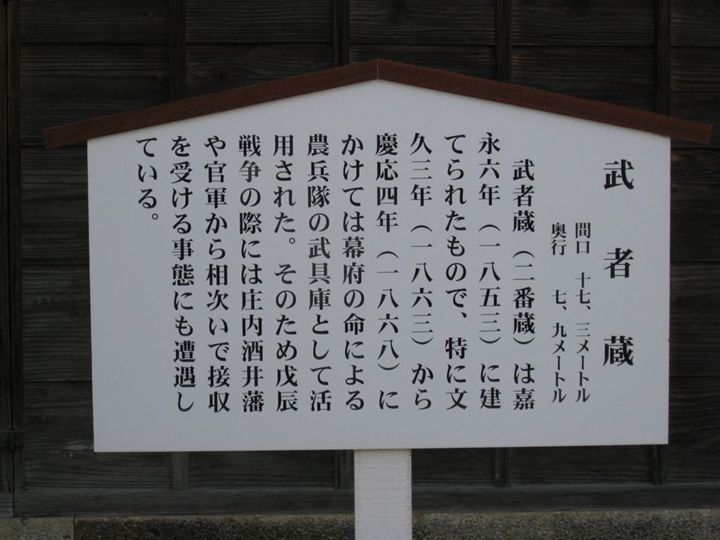 武者蔵
間口　十七、三メートル
奥行　　七、九メートル
　武者蔵（二番蔵）は嘉
永六年（一八五三）に建
てられたもので、特に文
久三年（一八六三）から
慶応四年（一八六八）に
かけては幕府の命による
農兵隊の武具庫として活
用された。そのため戊辰
戦争の際には庄内酒井藩
や官軍から相次いで接収
を受ける事態にも遭遇し
ている。